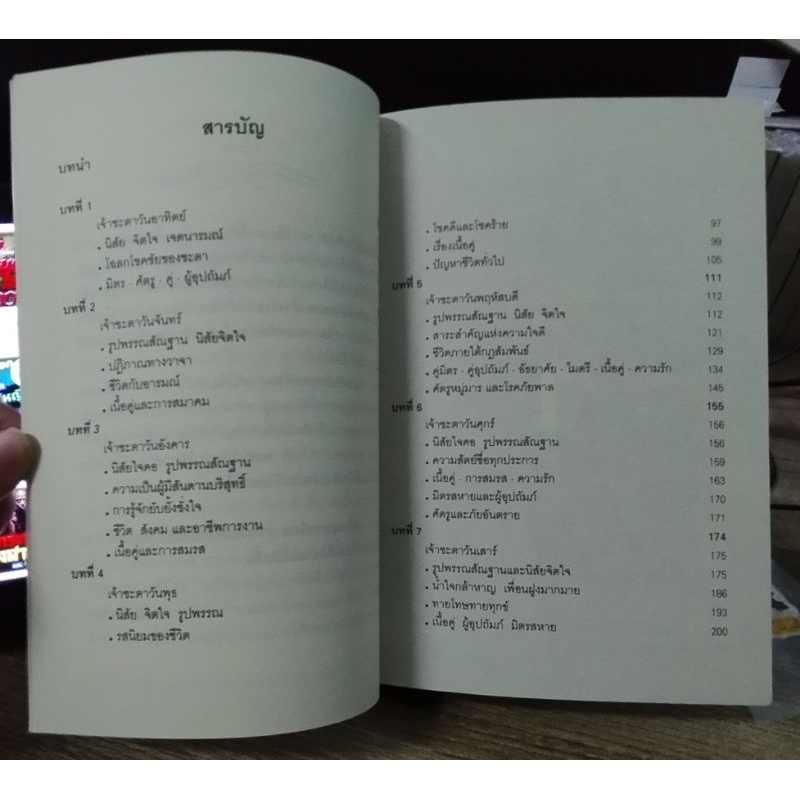 สารบัญ
บทนำ
บทที่ 1
เจ้าชะตาวันอาทิตย์
• นิสัย จิตใจ เจตนารมณ์
• โฉลกโชคชัยของชะตา
• มิตร - ศัตรู - คู่ - ผู้อุปถัมภ์
บทที่ 2
เจ้าชะตาวันจันทร์
• รูปพรรณสัณฐาน นิสัยจิตใจ
• ปฏิภาณทางวาจา
• ชีวิตกับอารมณ์
• เนื้อคู่และการสมาคม
บทที่ 3
เจ้าชะตาวันอังคาร
• นิสัยใจคอ รูปพรรณสัณฐาน
• ความเป็นผู้มีสันดานบริสุทธิ์
• การรู้จักยับยั้งชั่งใจ
• ชีวิต สังคม และอาชีพการงาน
• เนื้อคู่และการสมรส
บทที่ 4
เจ้าชะตาวันพุธ
• นิสัย จิตใจ รูปพรรณ
• รสนิยมของชีวิต
• โชคดีและโชคร้าย 97
• เรื่องเนื้อคู่ 99
• ปัญหาชีวิตทั่วไป 105
บทที่ 5 111
เจ้าชะตาวันพฤหัสบดี 112
• รูปพรรณสัณฐาน นิสัย จิตใจ 112
• สาระสำคัญแห่งความใจดี 121
• ชีวิตภายใต้กฎสัมพันธ์ 129
• คู่มิตร - คู่อุปถัมภ์ - อัธยาศัย - ไมตรี - เนื้อคู่ - ความรัก 134
• ศัตรูหมู่มาร และโรคภัยพาล 145
บทที่ 6 155
เจ้าชะตาวันศุกร์ 156
• นิสัยใจคอ รูปพรรณสัณฐาน 156
• ความสัตย์ซื่อทุกประการ 159
• เนื้อคู่ - การสมรส - ความรัก 163
• มิตรสหายและผู้อุปถัมภ์ 170
• ศัตรูและภัยอันตราย 171
บทที่ 7 174
เจ้าชะตาวันเสาร์ 175
• รูปพรรณสัณฐานและนิสัยจิตใจ 175
• น้ำใจกล้าหาญ เพื่อนฝูงมากมาย 186
• ทายโทษทายทุกข์ 193
• เนื้อคู่ ผู้อุปถัมภ์ มิตรสหาย 200